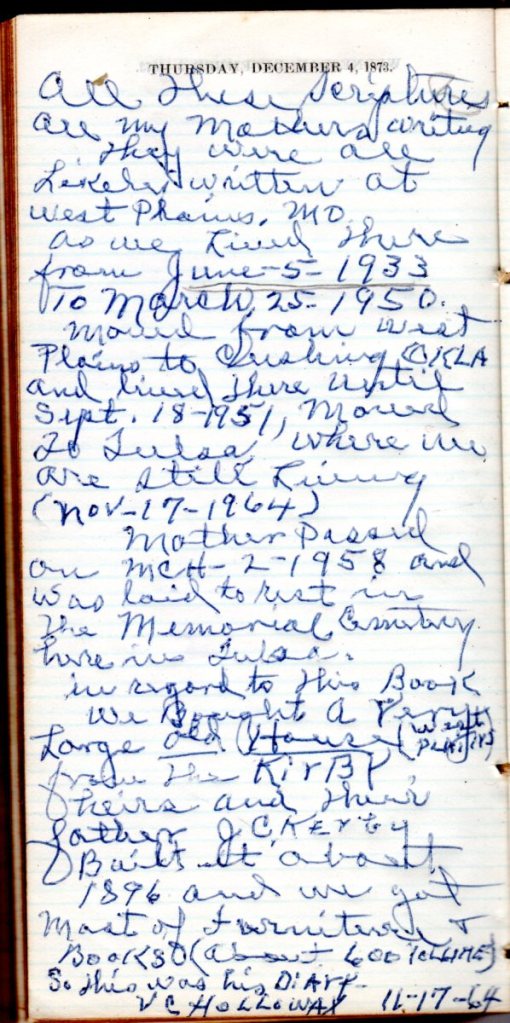 THURSDAY, DECEMBER 4, 1873.
All These Scriptures
are my Mothers writing
They were all
Likely written at
West Plains, MO.
as we Lived There
from June-5-1933
To March, 25-1950.
Moved from West
Plains to Cushing OKLA
and lived There until
Sept. 18-1951, Moved
To Tulsa, where we
are still Living
(Nov-17-1964)
Mother Passed
on MCH-2-1958 and
was laid to rest in
The Memorial Cemetery
here in Tulsa.
in regard to This Book
We Bought A Very
Large old House (West
Plains)
from The KirBy
heirs and Their
father J C Kerby
Built it about
1896 and we got
Most of Furniture &
Books (About 600 VOLUME)
So This was his DiAry-
V C HOLLOWAY 11-17-64